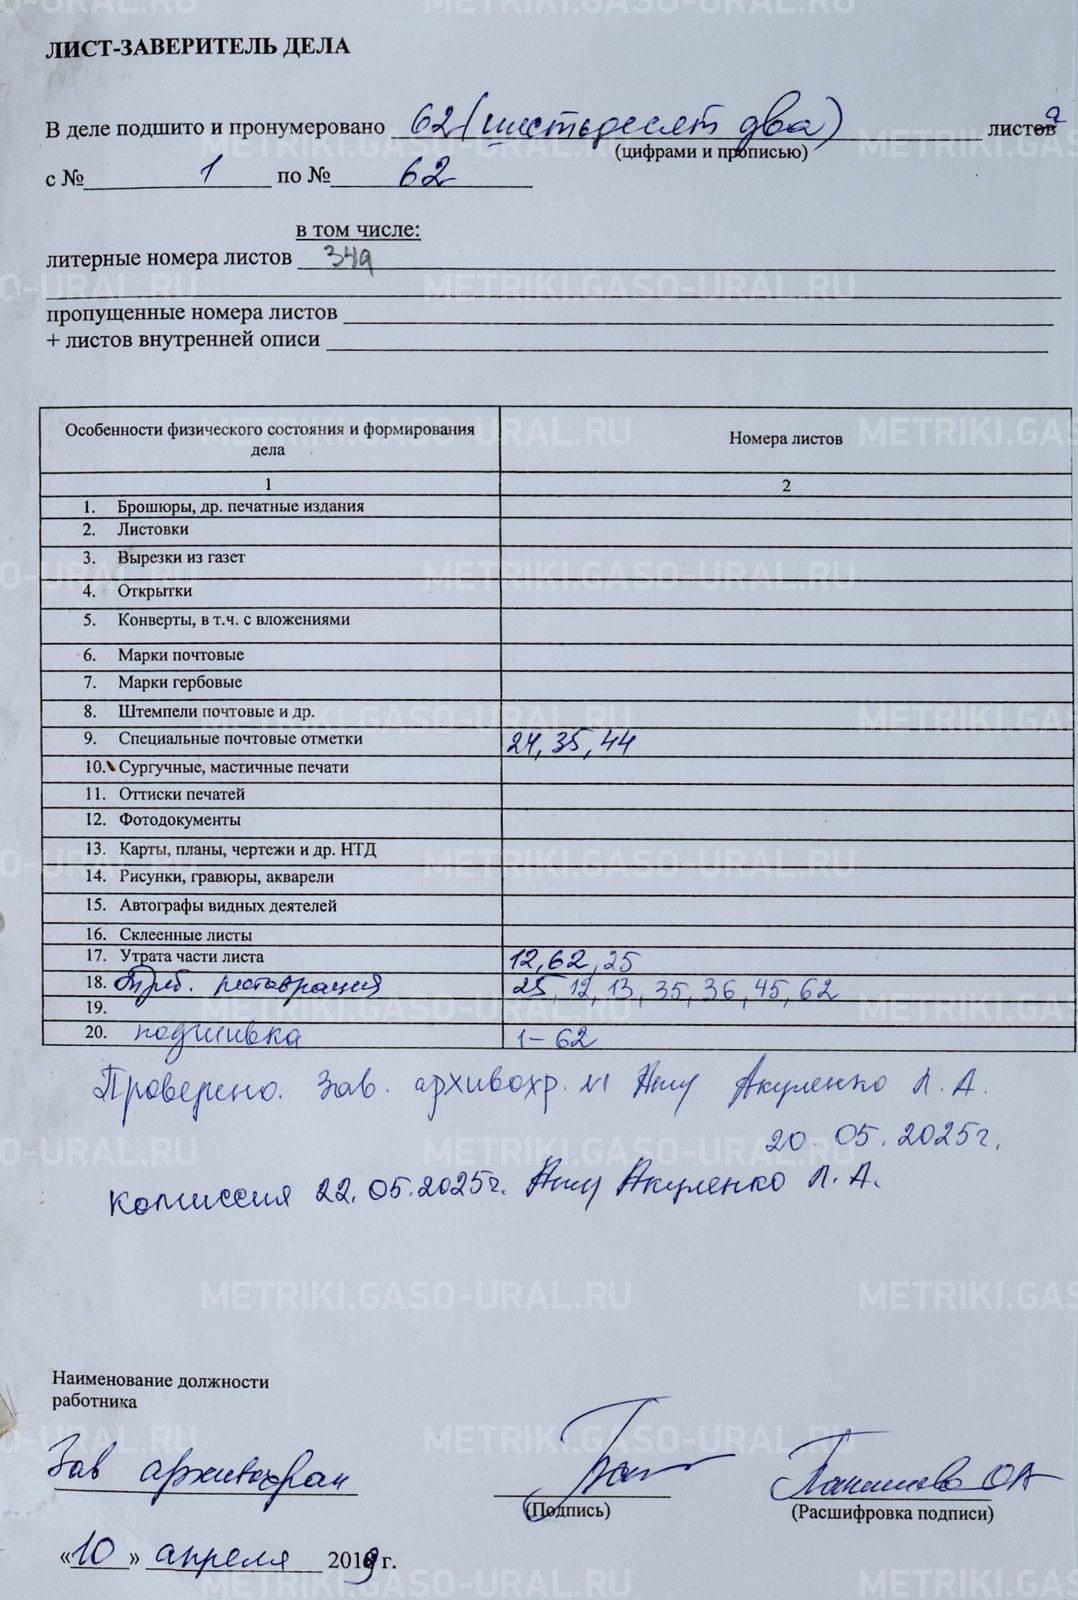 ЛИСТ-ЗАВЕРИТЕЛЬ ДЕЛА
В деле подшито и пронумеровано 62 (шестьдесят два) листова
(цифрами и прописью)
с № 1 по № 62
в том числе:
литерные номера листов 34а
пропущенные номера листов
+ листов внутренней описи
Особенности физического состояния и формирования дела Номера листов
1 2
1. Брошюры, др. печатные издания
2. Листовки
3. Вырезки из газет
4. Открытки
5. Конверты, в т.ч. с вложениями
6. Марки почтовые
7. Марки гербовые
8. Штемпели почтовые и др.
9. Специальные почтовые отметки 24, 35, 44
10. Сургучные, мастичные печати
11. Оттиски печатей
12. Фотодокументы
13. Карты, планы, чертежи и др. НТД
14. Рисунки, гравюры, акварели
15. Автографы видных деятелей
16. Склеенные листы
17. Утрата части листа 12, 62, 25
18. Треб. реставрация 25, 12, 13, 35, 36, 45, 62
19.
20. подшивка 1-62
Проверено. Зав. архивохр. №1 Акуленко Л. А.
20.05.2025г.
Комиссия 22.05.2025г. Акуленко Л. А.
Наименование должности
работника
Зав архивохран
(Подпись) (Расшифровка подписи)
«10» апреля 2019 г.
METRIKI.GASO-URAL.RU